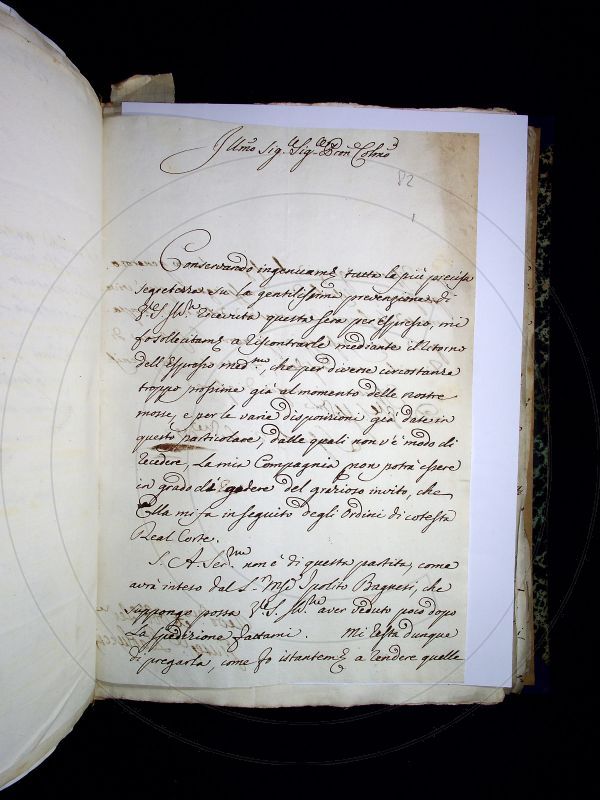 Illmo Sig.e Sig.e Pron Colmo
82
1
Conservando ingenuam.e tutta la più precisa
segretezza su la gentilissima prevenzione di
V.S. Ill.ma ricevuta questa sera per Espresso, mi
fo sollecitam.e a riscontrarle mediante il ritorno
dell'Espresso med.mo, che per diverse circostanze
troppo prossime già al momento delle nostre
mosse, e per le varie disposizioni già date in
questo particolare, dalle quali non v'è modo di
recedere, La mia Compagnia non potrà essere
in grado di godere del grazioso invito, che
Ella mi fa in seguito degli Ordini di cotesta
Real Corte.
S. A. Ser.ma non è di questa partita, come
avrà inteso dal S.r Ipolito Bagnesi, che
suppongo possa V.S. Ill.ma aver veduto poco dopo
La spedizione fattami. Mi resta dunque
di pregarla, come fo istantem.e a rendere quelle